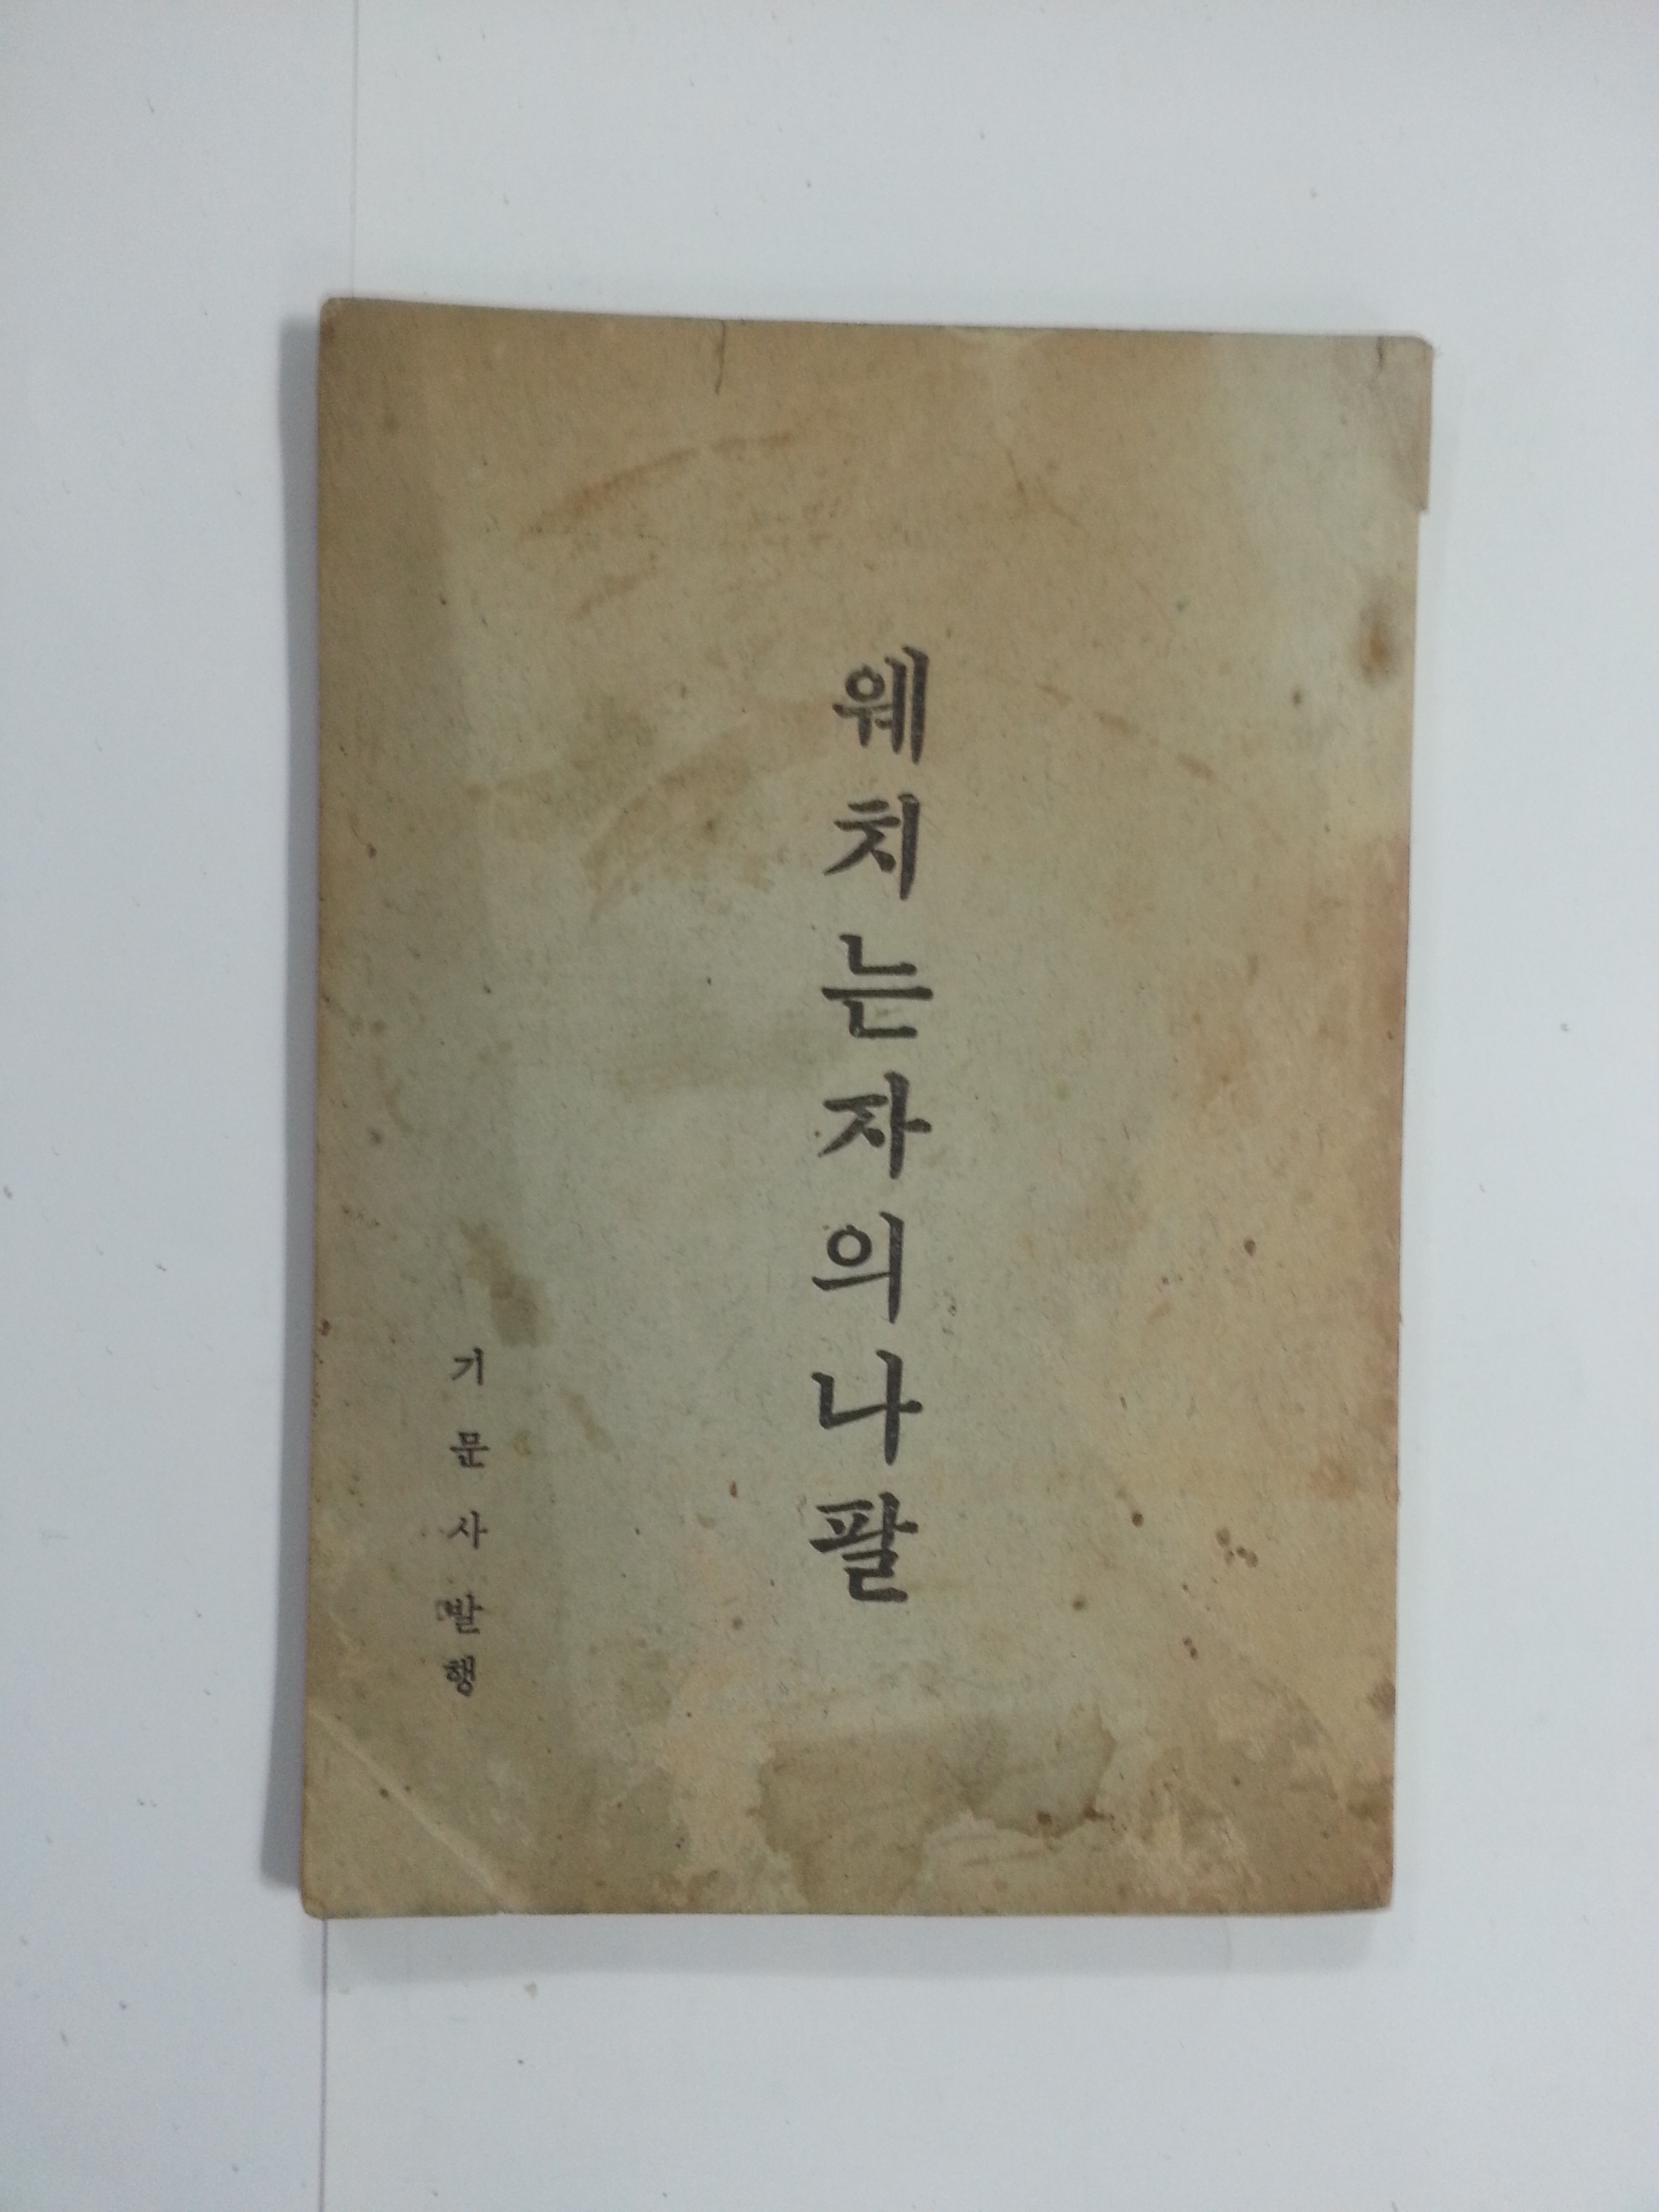 웨치는자의나팔
기문사발행